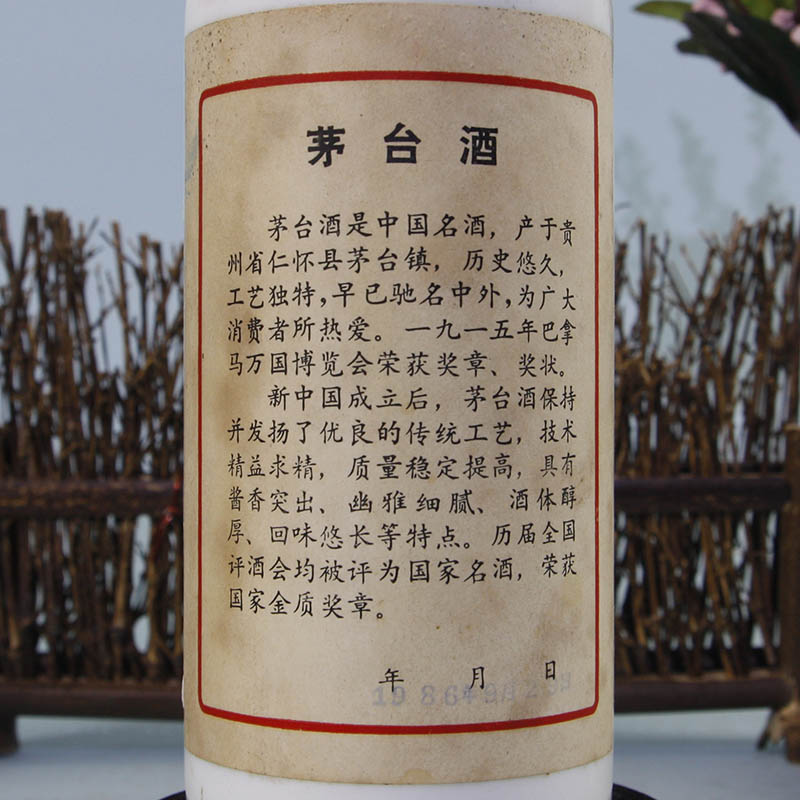 茅台酒
茅台酒是中国名酒，产于贵
州省仁怀县茅台镇，历史悠久，
工艺独特，早已驰名中外，为广大
消费者所热爱。一九一五年巴拿
马万国博览会荣获奖章、奖状。
新中国成立后，茅台酒保持
并发扬了优良的传统工艺，技术
精益求精，质量稳定提高，具有
酱香突出、幽雅细腻、酒体醇
厚、回味悠长等特点。历届全国
评酒会均被评为国家名酒，荣获
国家金质奖章。
年 月 日
1986年9月29日